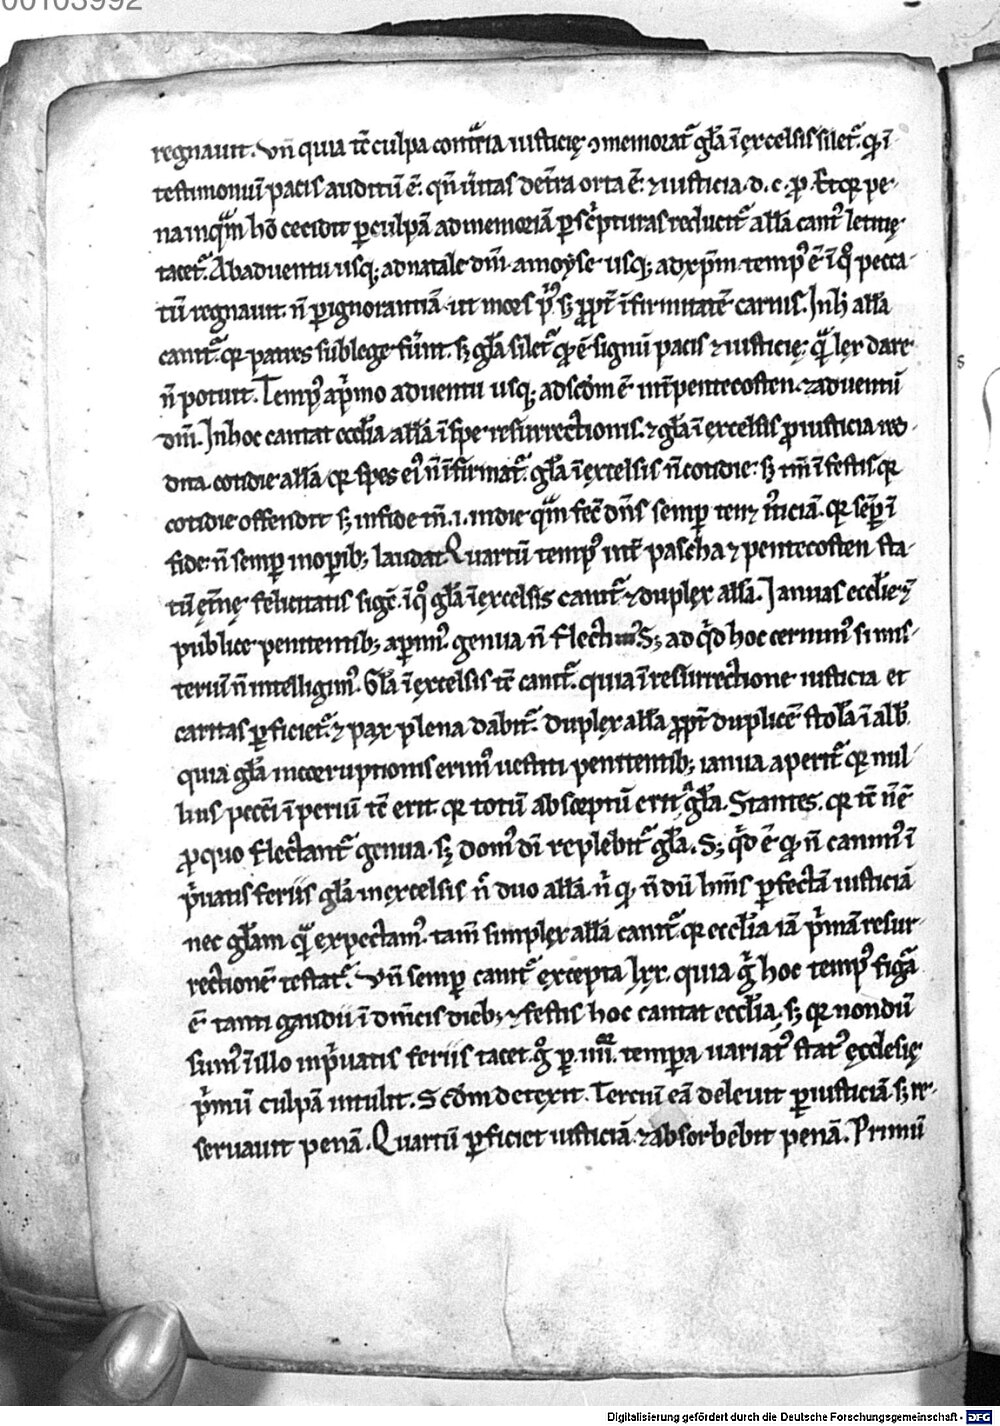 00103992
regnauit. Vn̄ quia tc̄ culpa contraria iusticię ↄmemorat᷑ gl̄a ī excelsis silet᷑. q̇ ī
testimoniū pacis auditū ē. qn̄ ueritas de tr̄ra orta ē. ⁊ iusticia. d. c. p. Et qr pe-
na inqua͞m hō cecidit ꝑ culpā ad memoriā ꝑ scpturas reducit᷑ allā cant᷑ letitię
tacet᷑. Ab aduentu usq; ad natale dn̄i. a moyse usq; ad xp̄m. temp᷒ ē ī qͦ pecca-
tū regnauit. n̄ ꝑ ignorantiā. ut mors p͛᷒. s; ꝓpt͛ īfirmitatē carnis. In h̄ allā
canit᷑. qr patres sub lege fuer̄nt. s; gl̄a silet᷑. q̇ ē signū pacis ⁊ iusticię. qā lex dare
n̄ potuit. Temp᷒ a pͥmo aduentu usq; ad scdm ē int͛ pentecosten. ⁊ aduentū
dn̄i. In hoc cantat eccl̄ia allā ī spe resurrectionis. ⁊ gl̄a ī excelsis pro iusticia red-
dita. cotidie allā. qr spes ei᷒ n̄ īfirmat᷑. gl̄a ī excelsis n̄ cotidie. s; tm̄ ī festis qr
cotidie offendit s; in fide tn̄ .i. in die qua͞m fec̄ dn̄s semꝑ tenet iusticiā. qr semꝑ ī
fide. n̄ semꝑ in operib; laudat. Quartū temp᷒ int͛ pascha ⁊ pentecosten sta-
tū ęt͛nę felicitatis sigt̄. ī qͦ gl̄a ī excelsis canit᷑ ⁊ duplex alla. Ianuas eccl̄ie ⁊
publice penitentib; aperim᷒. genua n̄ flectim᷒. S; ad qͥd hoc cernim᷒ si mis-
teriū n̄ intelligim᷒. Gl̄a ī excelsis tc̄ canit᷑. quia ī resurrectione iusticia et
caritas ꝑficiet᷑. ⁊ pax plena dabit᷑. Duplex allā ꝓpt͛ duplicē stolā ī alb.
quia gl̄a incorruptionis erim᷒ uestiti penitentib; ianua aperit᷑ qr nul-
lius pecc̄i īperiū tc̄ erit. qr totū absorptū erit ī gl̄a. Stantes. qr tc̄ n̄ ē
pro quo flectant᷑ genua. s; dom᷒ dī replebit᷑ gl̄a. S; qd ē q̇ n̄ canim᷒ ī
pͥuatis feriis gl̄a in excelsis n̄ duo allā n̄ q̇ n̄ dū hm̄s ꝑfectā iusticiā
nec gl̄am quā expectam᷒. tam̄ simplex allā canit᷑ qr eccl̄ia iā pͥmā resur-
rectionē testat᷑. Vn̄ semꝑ canit᷑ excepta lxx. quia gͥ hoc temp᷒ figā
ē tanti gaudii ī dn̄icis dieb; ⁊ festis hoc cantat eccl̄ia. s; qr nondū
sum᷒ ī illo in pͥuatis feriis tacet. gͦ ꝑ .iiii. tempora uariat᷒ stat᷒ ęcclesię.
pͥmū culpā intulit. Scdm detexit. Terciū eā deleuit ꝑ iusticiā. s; re-
seruauit penā. Quartū ꝑficiet iusticiā. ⁊ absorbebit penā. Primū
Digitalisierung gefördert durch die Deutsche Forschungsgemeinschaft - DFG